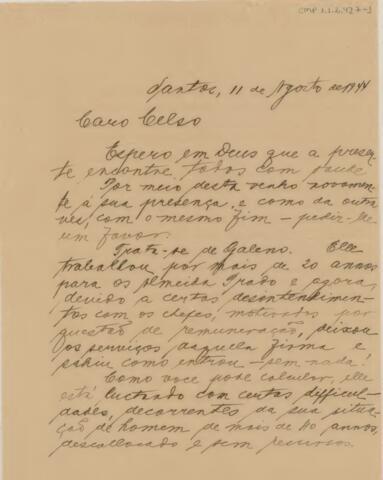 CMP 1.1.6.427-1
Santos, 11 de Agosto de 1944
Caro Celso
Espero em Deus que a presen-
te encontre todos com saude
Por meio desta venho novamen-
te á sua presença, e como da outra
vês, com o mesmo fim – pedir-lhe
um favor.
Trata-se de Galeno. Elle
trabalhou por mais de 20 annos
para os Almeida Prado e agora,
devido a certos desentendimen-
tos com os chefes, motivados por
questão de remuneração, deixou
os serviços daquella firma e
sahiu como entrou – sem nada!
Como voce pode calcular, elle
está luctando com certas difficul-
dades, decorrentes da sua situa-
ção de homem de mais de 40 annos,
descollocado e sem recursos.